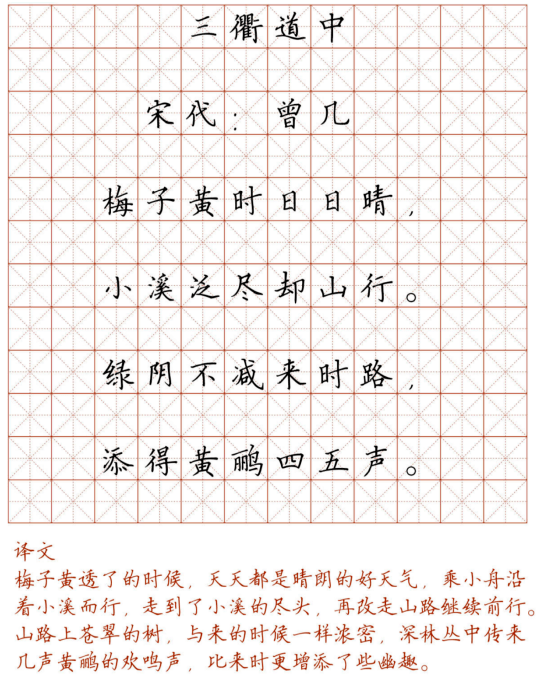 三衢道中
宋代：曾几
梅子黄时日日晴，
小溪泛尽却山行。
绿阴不减来时路，
添得黄鹂四五声。
译文
梅子黄透了的时候，天天都是晴朗的好天气，乘小舟沿
着小溪而行，走到了小溪的尽头，再改走山路继续前行。
山路上苍翠的树，与来的时候一样浓密，深林丛中传来
几声黄鹂的欢鸣声，比来时更增添了些幽趣。